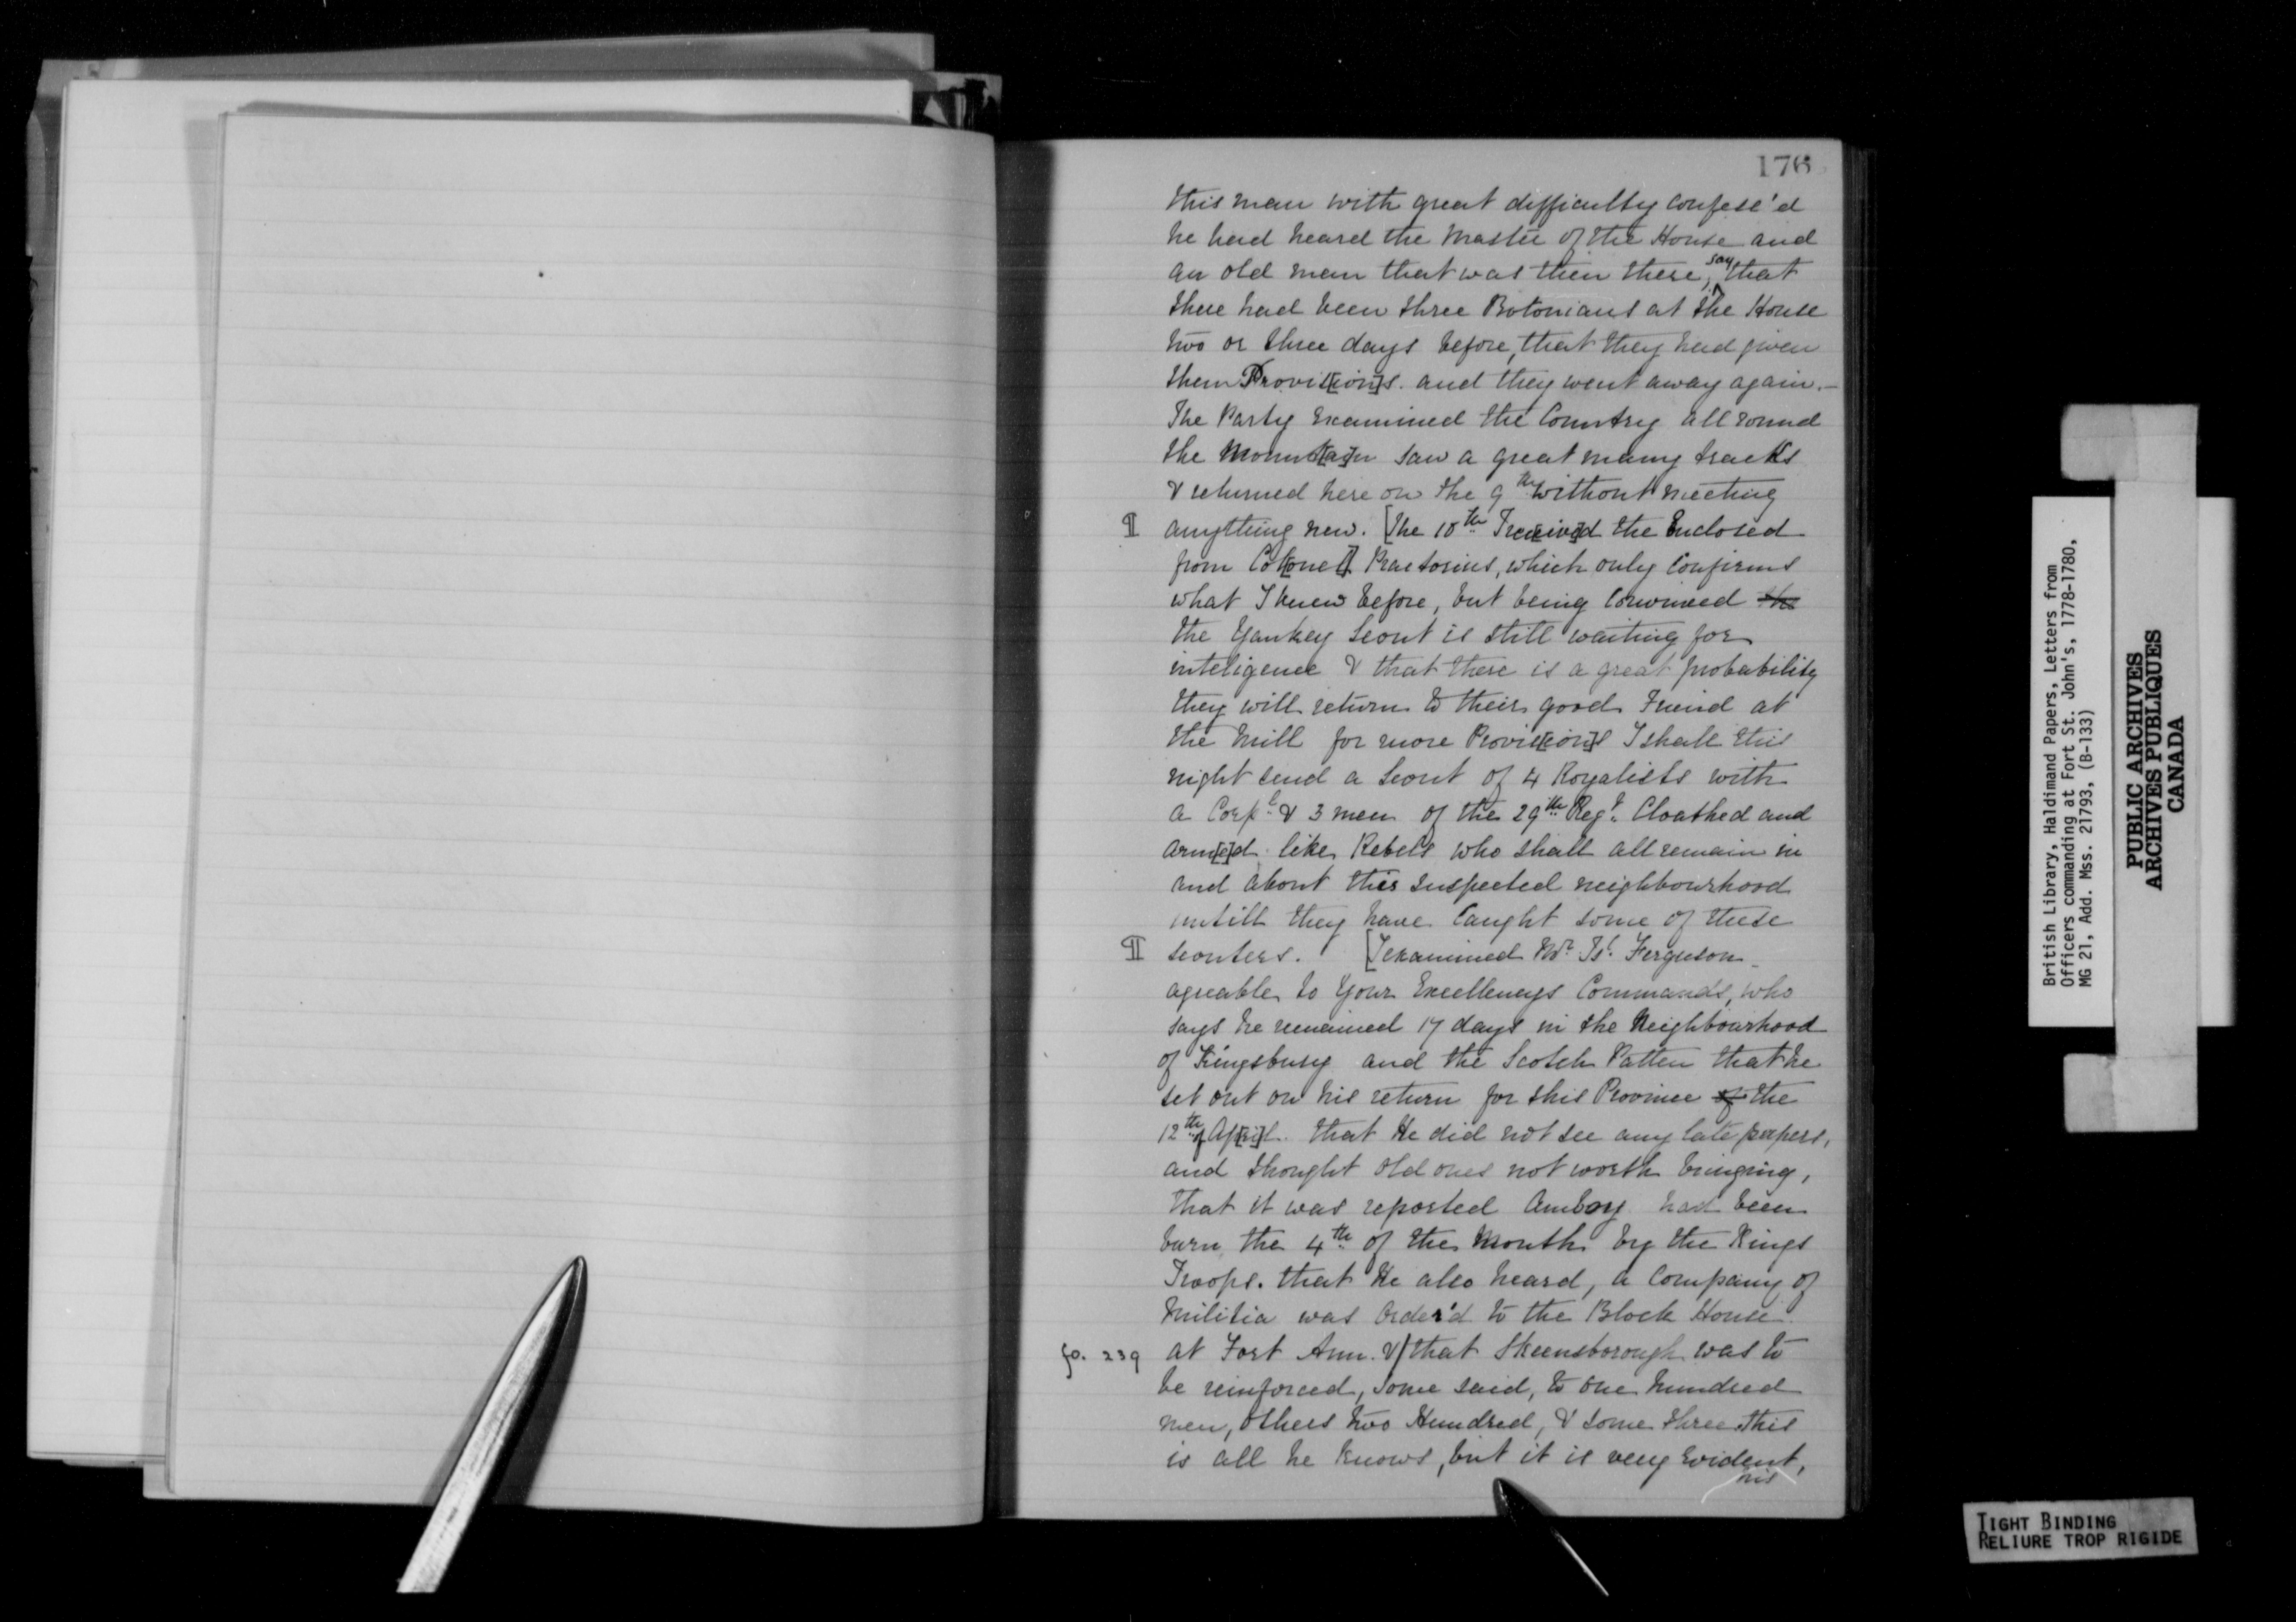 176
this man with great difficulty confess'd
he had heard the Master of the House and
an old man that was then there, say that
there had been three Bostonians at the House
two or three days before, that they had given
them Provis[ion]s. and they went away again.—
The Party examined the Country all round
the Mount[ai]n saw a great many tracks
& returned here on the 9th without meeting
¶ anything new. [The 10th I rec[eive]d the Enclosed
from Col[onel] Praetorius, which only Confirms
what I knew before, but being Convinced the
the Yankey Scout is still waiting for
inteligence & that there is a great probability
they will return to their good Friend at
the Mill for more Provis[ion]s I shall this
night send a Scout of 4 Royalists with
a Corpl & 3 men of the 29th Regt. Cloathed and
arm[e]d like Rebels who shall all remain in
and about this suspected neighbourhood
untill they have Caught some of these
¶ scouters. [I examined Mr. Ferguson
agreable to Your Excellencys Commands, who
says he remained 17 days in the Neighbourhood
of Kingsbury and the Scotch Patten that he
set out on his return for this Province of the
12th of Ap[ri]l. that He did not see any late papers,
and thought old ones not worth bringing,
that it was reported Amboy had been
burn the 4th of the Month by the Kings
Troops. that He also heard, a Company of
Militia was Order'd to the Block House
fo. 239 at Fort Ann. &/that Skeensborough was to
be reinforced, some said, to one hundred
men, others two Hundred, & some three. this
is all he knows, but it is very Evident,
his
British Library, Haldimand Papers, Letters from
Officers commanding at Fort St. John's, 1778-1780,
MG 21, Add. Mss. 21793, (B-133)
PUBLIC ARCHIVES
ARCHIVES PUBLIQUES
CANADA
TIGHT BINDING
RELIURE TROP RIGIDE